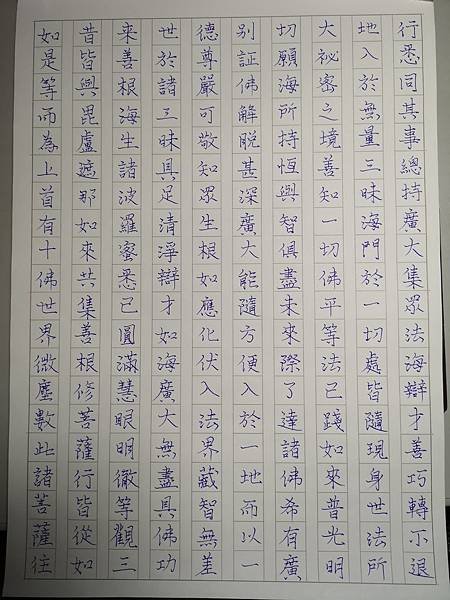 如是等而為上首有十佛世界微塵數此諸菩薩往
昔皆與毘盧遮那如來共集善根修菩薩行皆從如
來善根海生諸波羅蜜悉已圓滿慧眼明徹等觀三
世於諸三昧具足清淨辯才如海廣大無盡具佛功
德尊嚴可敬知眾生根如應化伏入法界藏智無差
別証佛解脫甚深廣大能隨方便入於一地而以一
切願海所持恆與智俱盡未來際了達諸佛希有廣
大祕密之境善知一切佛平等法已踐如來普光明
地入於無量三昧海門於一切處皆隨現身世法所
行悉同其事總持廣大集眾法海辯才善巧轉不退